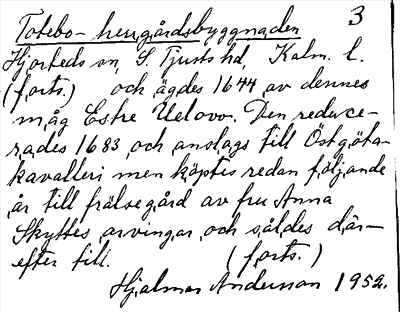 Totebo - herrgårdsbyggnaden 3
Hjorteds sn, S. Tjusts hd, Kalm. l.
(forts.) och ägdes 1644 av dennes
måg Estre Uelovo. Den reduce-
rades 1683 och anslags till Östgöta-
kavalleri men köptes redan följande
år till frälsegård av fru Anna
Skyttes arvingar och såldes där-
efter till. (forts.)
Hjalmar Andersson 1952.